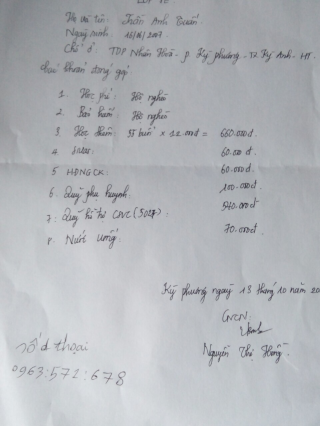 Họ và tên: Trần Anh Tuấn
Ngày sinh: 15/11/2007
Chỗ ở: TDP Nhân Hoà - p. Kỳ phương - TX Kỳ Anh - HT
Các khoản đóng góp
1. Học phí: Hộ nghèo
2. Bảo hiểm: Hộ nghèo
3 Học thêm: 55 buổi x 12.000đ = 660.000đ
4 60.000đ
5 HĐNGCK: 60.000đ
6. Quỹ phụ huynh 100.000đ
7. Quỹ hỗ trợ CSVC 540.000đ
8. Nước uống 70.000đ
Kỳ phương ngày 13 tháng 10 năm 20
GVCN
Nguyễn Thị Hồng
Số đ thoại
0963:571:678